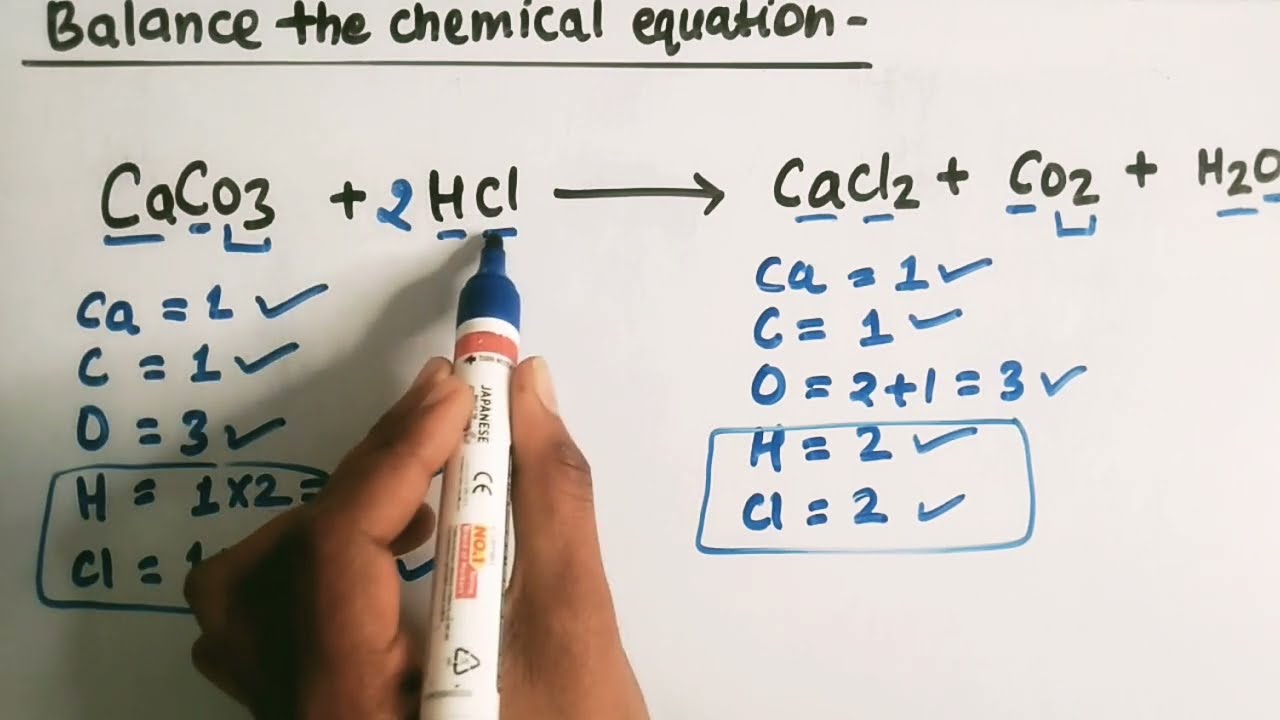 Balance the chemical equation-
CaCo3 + 2 HCl ⟶ CaCl2 + Co2 + H2O
Ca = 1 ✓
C = 1 ✓
O = 3 ✓
H = 1×2 =
Cl = 1
✓
Ca = 1 ✓
C = 1 ✓
O = 2+1 = 3 ✓
H = 2 ✓
Cl = 2 ✓
JAPANESE
CE
NO.1